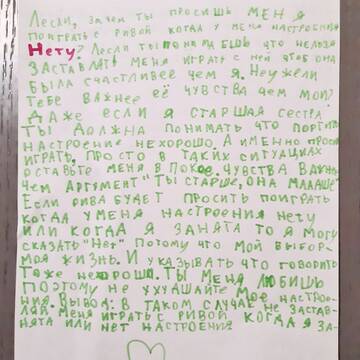 Лесли, зачем ты просишь меня
поиграть с Ривой когда у меня настроения
Нету? Лесли ты понимаешь что нельзя
заставлять меня играть с ней чтоб она
была счастливее чем я. Неужели
тебе важнее её чувства чем мои?
Даже если я старшая сестра
ты должна понимать что портить
настроение нехорошо. А именно прося
играть, просто в таких ситуациях
оставьте меня в покое. Чувства важнее
чем аргумент "Ты старше, она младше"
Если Рива будет просить поиграть
когда у меня настроения нету
или когда я занята то я могу
сказать "Нет" потому что мой выбор-
моя жизнь. И указывать что говорить
тоже нехорошо. Ты меня любишь
поэтому не ухушайте мое настрое-
ния. Вывод: в таком случае не застав-
ляй меня играть с Ривой когда я за-
нята или нет настроения